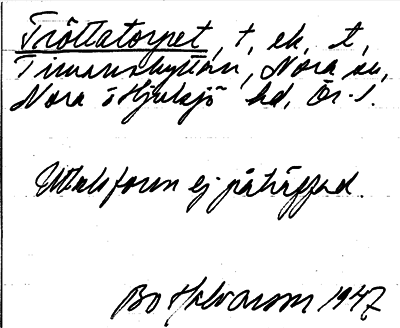 Tröttatorpet, t, ek, t,
Timanshyttan, Nora sn,
Nora o Hjulsjö hd, Ör. l.
Uttalsform ej påträffad.
Bo Halvarson 1947